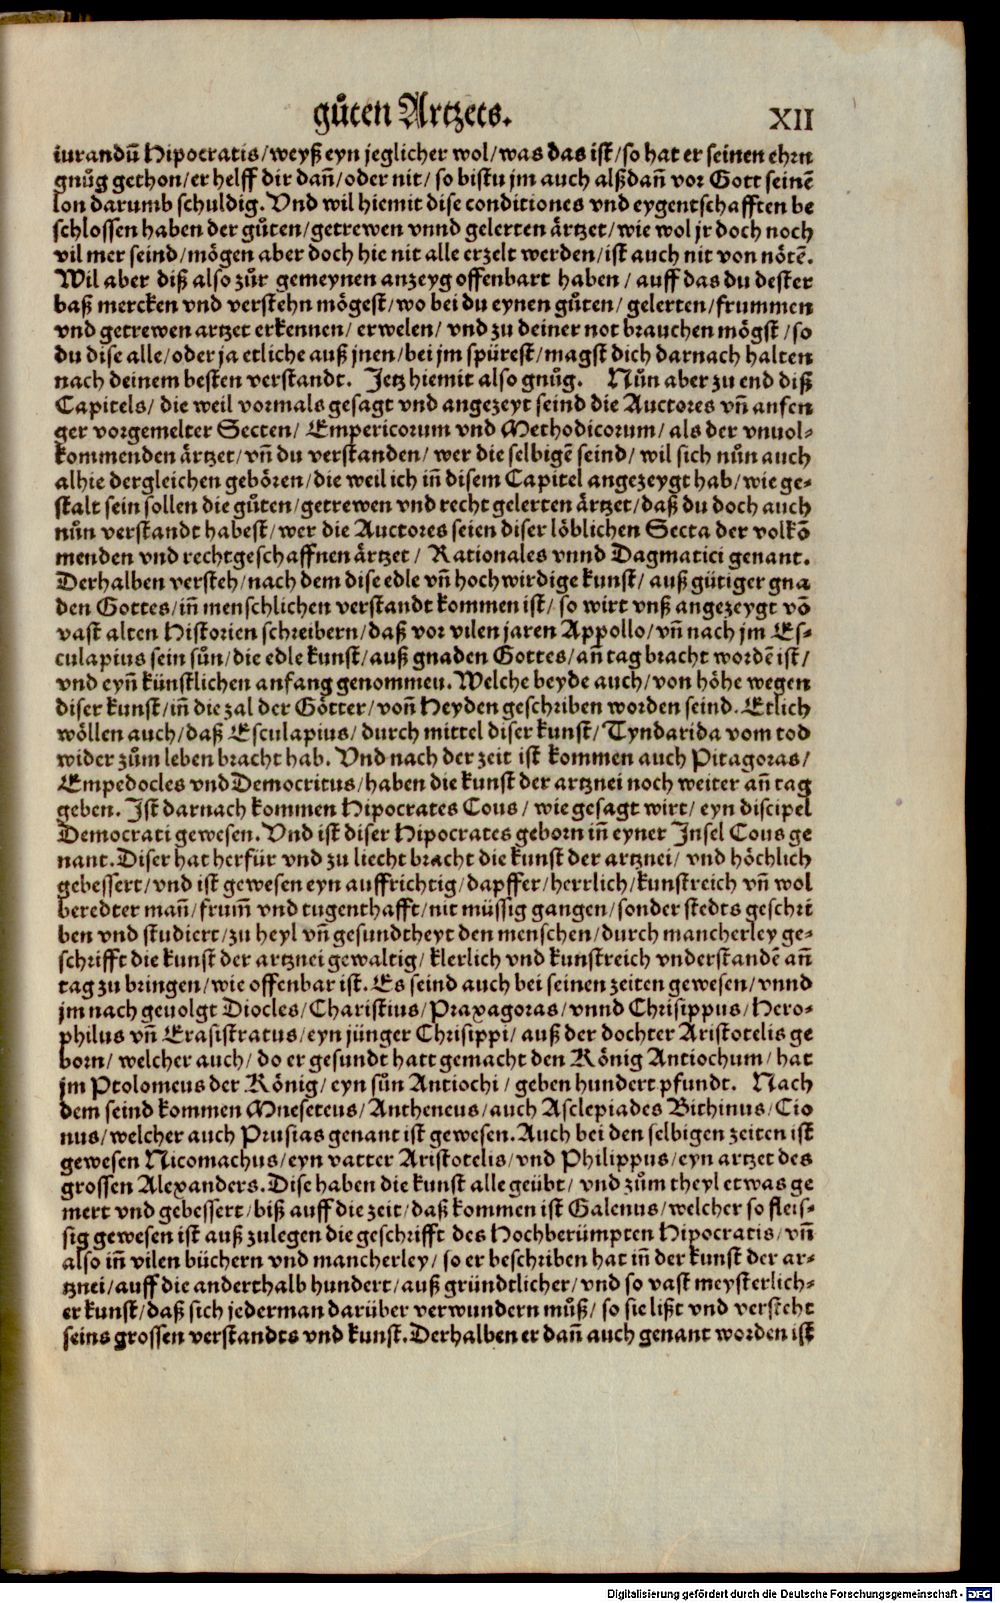 gůten Artzets.
XII
iurandū Hipocratis/weyß eyn jeglicher wol/was das ist/so hat er seinen ehrn
gnůg gethon/er helff dir dañ/oder nit/ so bistu jm auch alßdañ vor Gott seinē
lon darumb schuldig. Vnd wil hiemit dise conditiones vnd eygentschafften be
schlossen haben der gůten/getrewen vnnd gelerten ärtzet/wie wol jr doch noch
vil mer seind/mögen aber doch hie nit alle erzelt werden/ist auch nit von nötē.
Wil aber diß also zůr gemeynen anzeyg offenbart haben/ auff das du dester
baß mercken vnd verstehn mögest/wo bei du eynen gůten/ gelerten/frummen
vnd getrewen artzet erkennen/ erwelen/ vnd zu deiner not brauchen mögst/so
du dise alle/oder ja etliche auß jnen/bei jm spürest/magst dich darnach halten
nach deinem besten verstandt. Jetz hiemit also gnůg. Nůn aber zu end diß
Capitels/ die weil vormals gesagt vnd angezeyt seind die Auctores vñ anfen
ger vorgemelter Secten/ Empericorum vnd Methodicorum/ als der vnuol-
kommenden ärtzet/vñ du verstanden/ wer die selbigē seind/ wil sich nůn auch
alhie dergleichen gebören/die weil ich iñ disem Capitel angezeygt hab/wie ge-
stalt sein sollen die gůten/getrewen vnd recht gelerten ärtzet/daß du doch auch
nůn verstandt habest/wer die Auctores seien diser löblichen Secta der volkō
menden vnd rechtgeschaffnen ärtzet/ Rationales vnnd Dagmatici genant.
Derhalben versteh/nach dem dise edle vñ hochwirdige kunst/ auß gütiger gna
den Gottes/iñ menschlichen verstandt kommen ist/ so wirt vnß angezeygt vō
vast alten Historien schreibern/daß vor vilen jaren Appollo/vñ nach jm Es-
culapius sein sůn/die edle kunst/auß gnaden Gottes/añ tag bracht wordē ist/
vnd eyñ künstlichen anfang genommen. Welche beyde auch/von höhe wegen
diser kunst/iñ die zal der Götter/voñ Heyden geschriben worden seind. Etlich
wöllen auch/daß Esculapius/durch mittel diser kunst/Tyndarida vom tod
wider zům leben bracht hab. Vnd nach der zeit ist kommen auch Pitagoras/
Empedocles vnd Democritus/haben die kunst der artznei noch weiter añ tag
geben. Ist darnach kommen Hipocrates Cous/ wie gesagt wirt/ eyn discipel
Democrati gewesen. Vnd ist diser Hipocrates geborn iñ eyner Insel Cous ge
nant. Diser hat herfür vnd zu liecht bracht die kunst der artznei/ vnd höchlich
gebessert/vnd ist gewesen eyn auffrichtig/dapffer/herrlich/kunstreich vñ wol
beredter mañ/frum̃ vnd tugenthafft/nit müssig gangen/sonder stedts geschri
ben vnd studiert/zu heyl vñ gesundtheyt den menschen/durch mancherley ge-
schrifft die kunst der artznei gewaltig/klerlich vnd kunstreich vnderstandē añ
tag zu bringen/wie offenbar ist. Es seind auch bei seinen zeiten gewesen/vnnd
jm nach geuolgt Diocles/Charistius/Praxagoras/vnnd Chrisippus/Hero-
philus vñ Erasistratus/eyn jünger Chrisippi/ auß der dochter Aristotelis ge
born/ welcher auch/ do er gesundt hatt gemacht den König Antiochum/ hat
jm Ptolomeus der König/eyn sůn Antiochi/geben hundert pfundt. Nach
dem seind kommen Mneseteus/Antheneus/auch Asclepiades Bithinus/Cio
nus/welcher auch Prusias genant ist gewesen. Auch bei den selbigen zeiten ist
gewesen Nicomachus/eyn vatter Aristotelis/vnd Philippus/eyn artzet des
grossen Alexanders. Dise haben die kunst alle geübt/ vnd zům theyl etwas ge
mert vnd gebessert/biß auff die zeit/daß kommen ist Galenus/welcher so fleis-
sig gewesen ist auß zulegen die geschrifft des Hochberümpten Hipocratis/vñ
also iñ vilen büchern vnd mancherley/so er beschriben hat iñ der kunst der ar-
tznei/auff die anderthalb hundert/auß gründtlicher/vnd so vast meysterlich-
er kunst/daß sich jederman darüber verwundern můß/so sie lißt vnd versteht
seins grossen verstandts vnd kunst. Derhalben er dañ auch genant worden ist
Digitalisierung gefördert durch die Deutsche Forschungsgemeinschaft - DFG